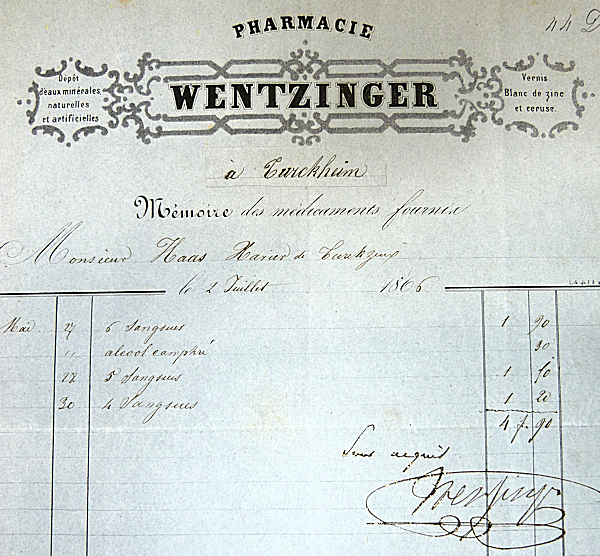 PHARMACIE
44
WENTZINGER
Dépôt
d'eaux minérales,
naturelles
et artificielles
Vernis
Blanc de zinc
et ceruse.
à Turckheim
Mémoire des médicaments fournis
Monsieur Haas Xavier de
le 2 Juillet 1866
Mai 27 6 Sangsues 1 90
" alcool camphré 30
28 5 Sangsues 1 50
30 4 Sangsues 1 20
4 f. 90
Pour acquis